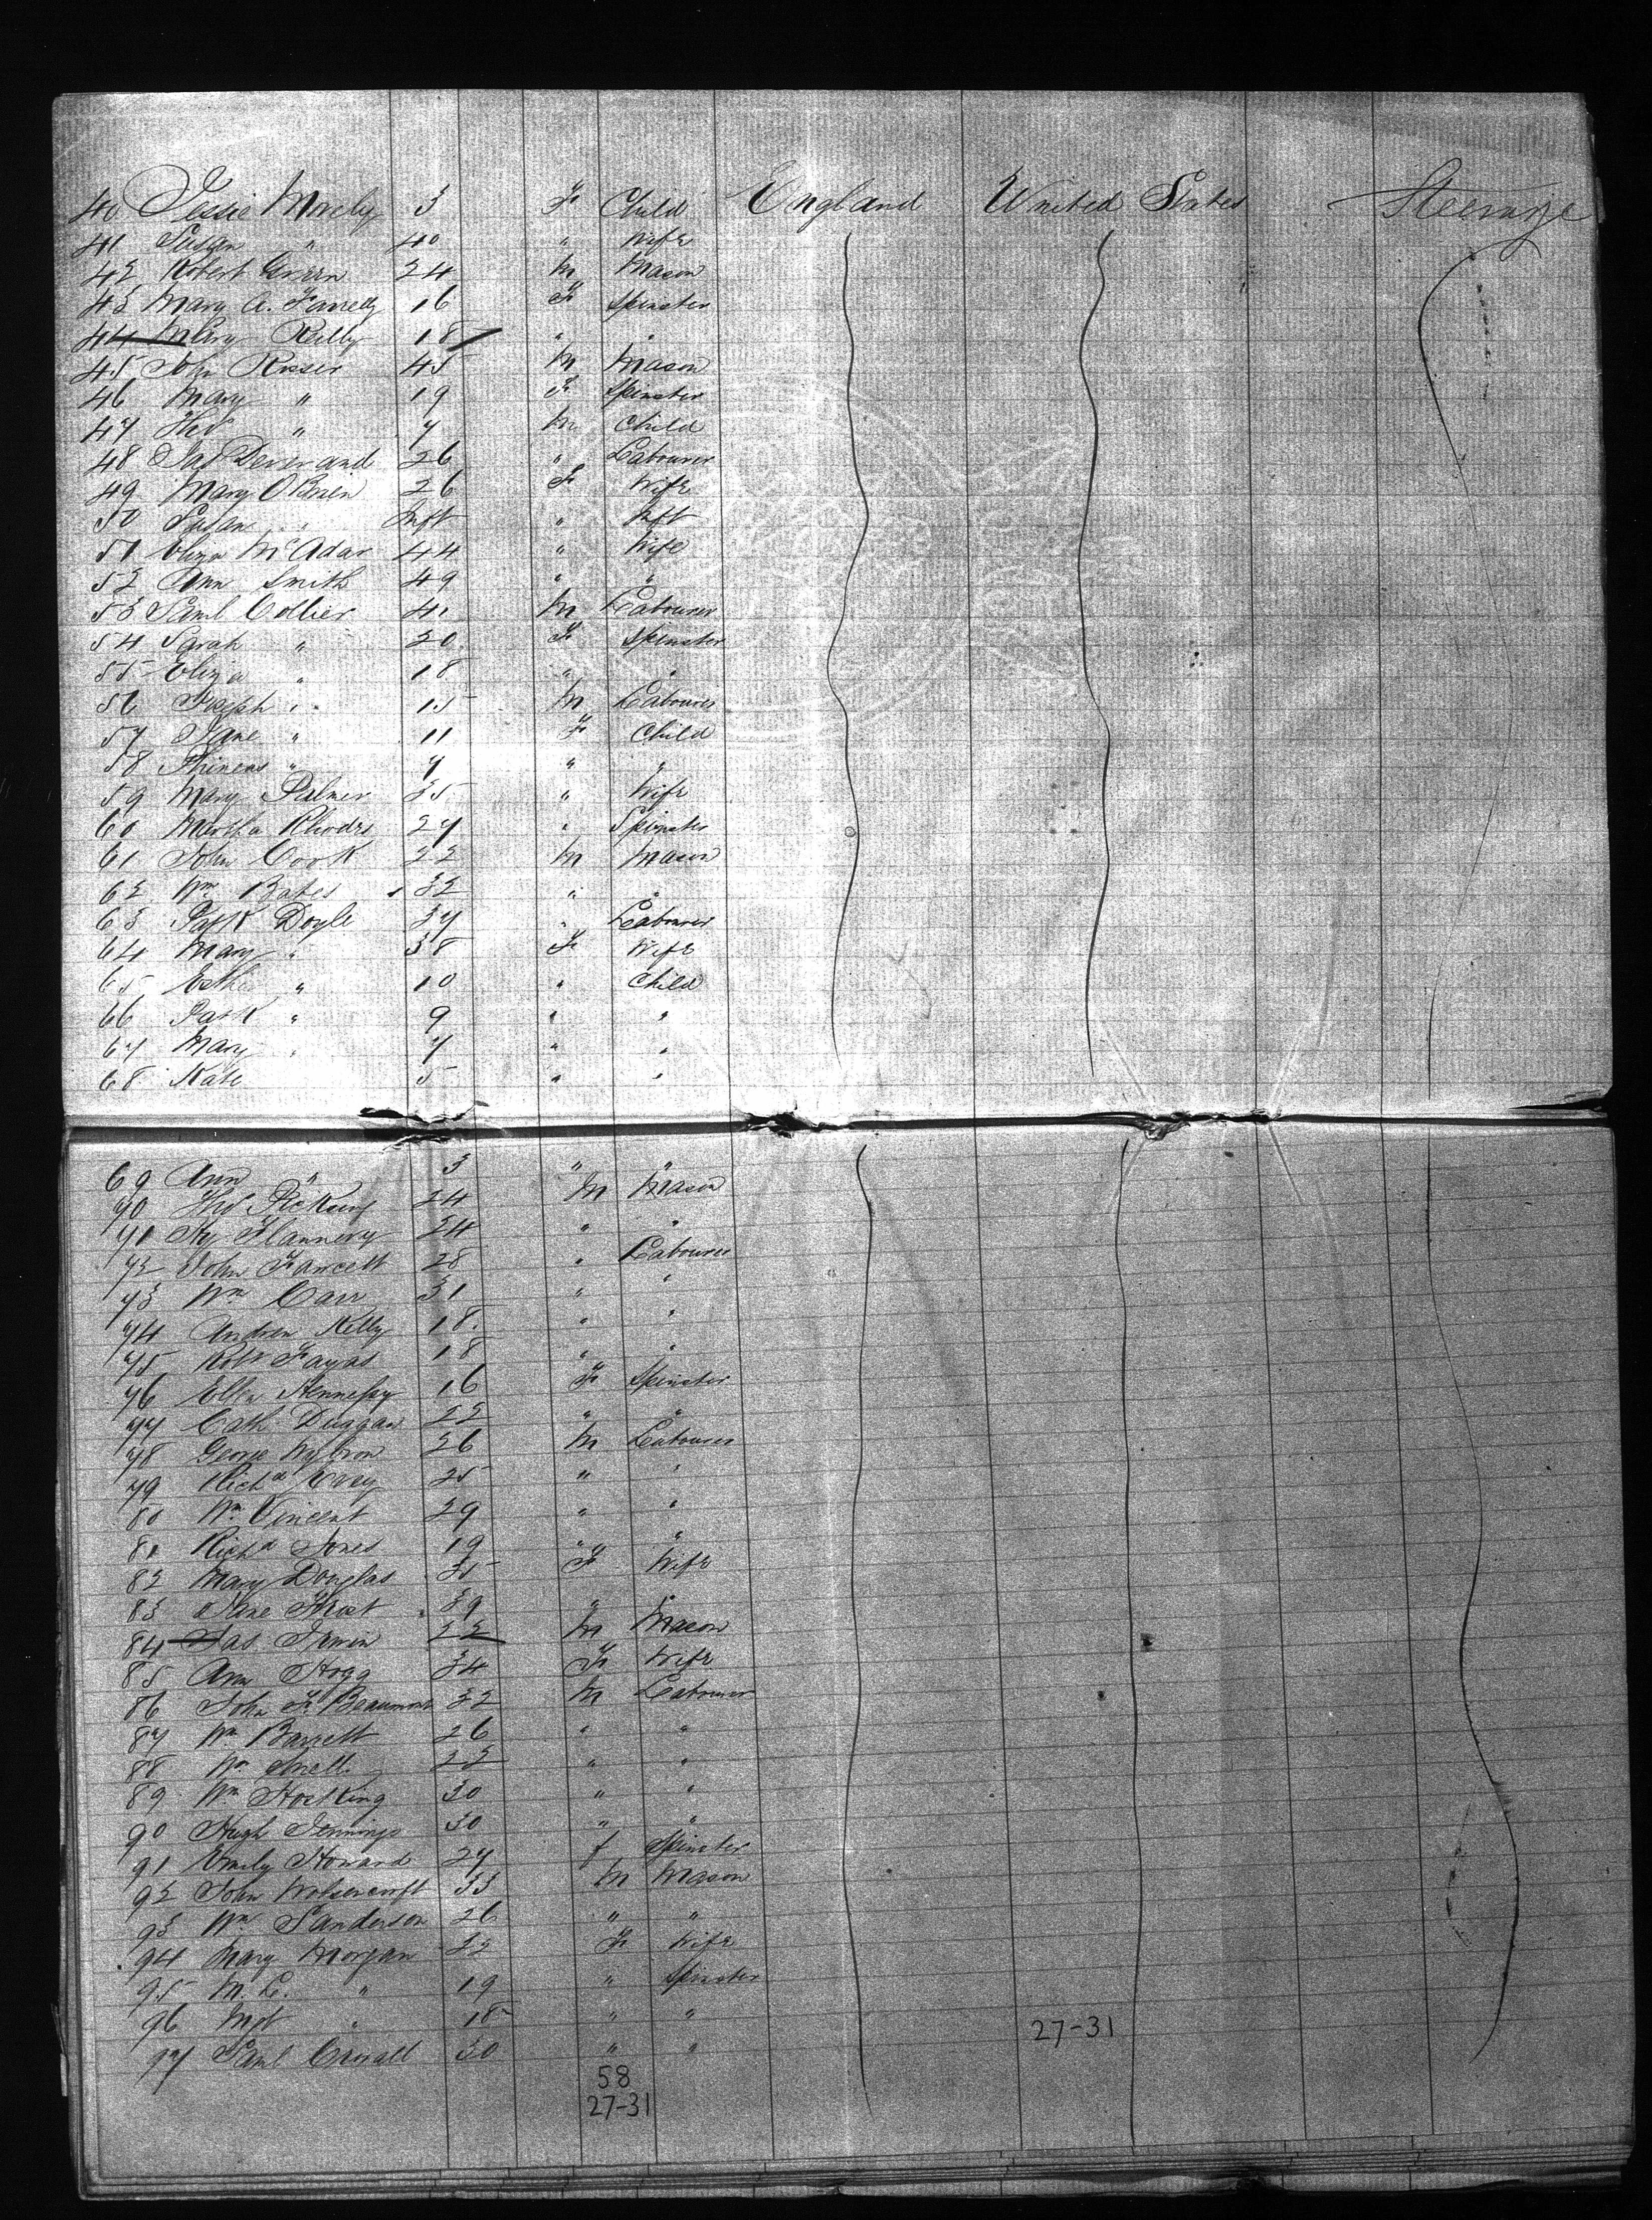 40 Jessie Morely 3 F Child England United States Steerage
41 Susan " 40 " Wife
42 Robert 24 M Mason
43 Mary A. Farrelly 16 F Spinster
44 Mary Reilly 18 " "
45 John Rosser 45 M Mason
46 Mary " 19 F Spinster
47 Thos " 7 M Child
48 Jas 26 " Labourer
49 Mary O'Brien 26 F Wife
50 Susan " Inft " Inft
51 Eliza McAdar 44 " Wife
52 Ann Smith 49 " "
53 Saml Collier 41 M Labourer
54 Sarah " 20 F Spinster
55 Eliza " 18 " "
56 Joseph " 15 M Labourer
57 Jane " 11 F Child
58 Phineas " 7 " "
59 Mary Palmer 35 " Wife
60 Martha Rhodes 27 " Spinster
61 John Cook 22 M Mason
62 Wm Bates 32 " "
63 Patk Doyle 37 " Labourer
64 Mary " 38 F Wife
65 Esther " 10 " Child
66 Patk " 9 " "
67 Mary " 7 " "
68 Kate 5 " "
69 Ann " 3 " "
70 Thos Pickering 24 M Mason
71 Hy Flannery 24 " "
72 John Fawcett 28 " Labourer
73 Wm Carr 31 " "
74 Andrew Kelly 18 " "
75 Robt 18 " "
76 Ellen Hennessy 16 F Spinster
77 Cath Duggan 22 " "
78 George 26 M Labourer
79 Richd 25 " "
80 Wm Vincent 29 " "
81 Richd Jones 19 " "
82 Mary Douglas 35 F Wife
83 Jane Frost 39 " "
84 Jas Irwin 22 M Mason
85 Ann Hogg 34 F Wife
86 John F. Beaumont 32 M Labourer
87 Wm Barrett 26 " "
88 Wm Snell 22 " "
89 Wm Hocking 30 " "
90 Hugh Jennings 30 " "
91 Emily Howard 27 f Spinster
92 John Wolsencroft 33 M Mason
93 Wm Sanderson 26 " "
94 Mary Morgan 52 F Wife
95 M. E. " 19 " Spinster
96 Mgt " 18 " "
97 Saml 30 " "
27-31
58
27-31